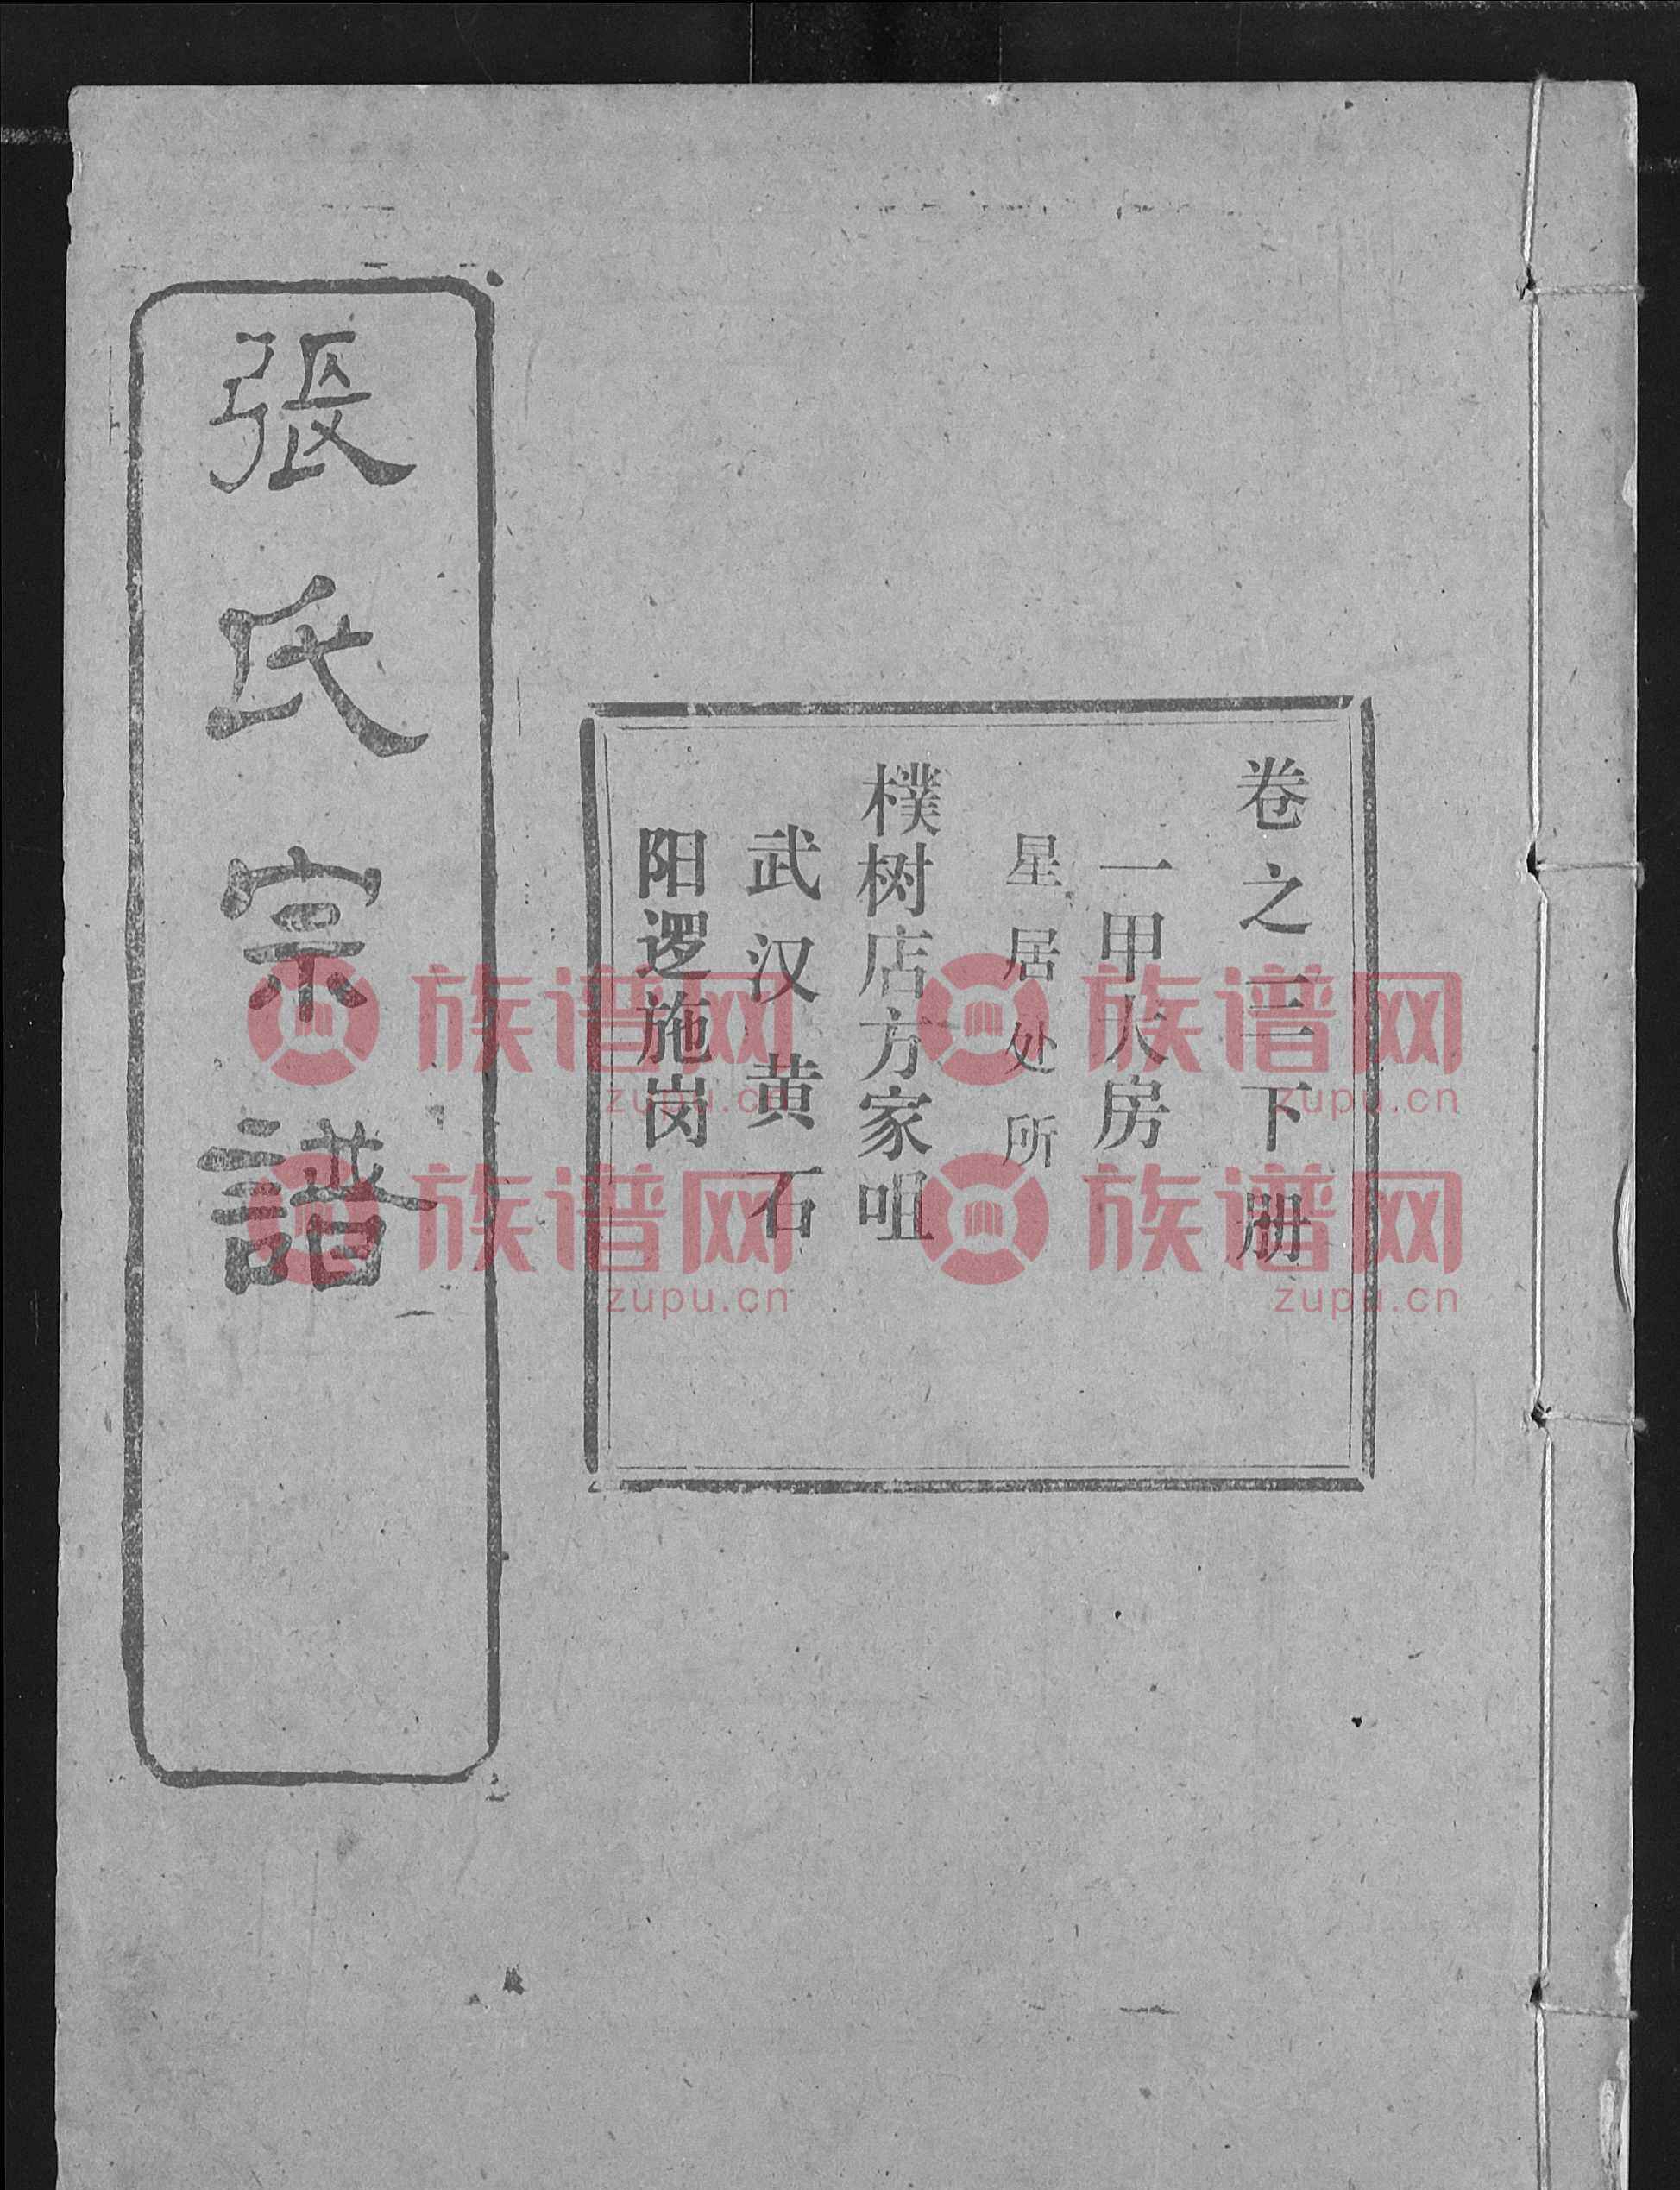 卷之三下册
一甲大房
星居处所
樸树店方家咀
武汉黄石
阳逻施岗
張氏宗譜
族谱网 族谱网
zupu.cn zupu.cn
族谱网 族谱网
zupu.cn zupu.cn